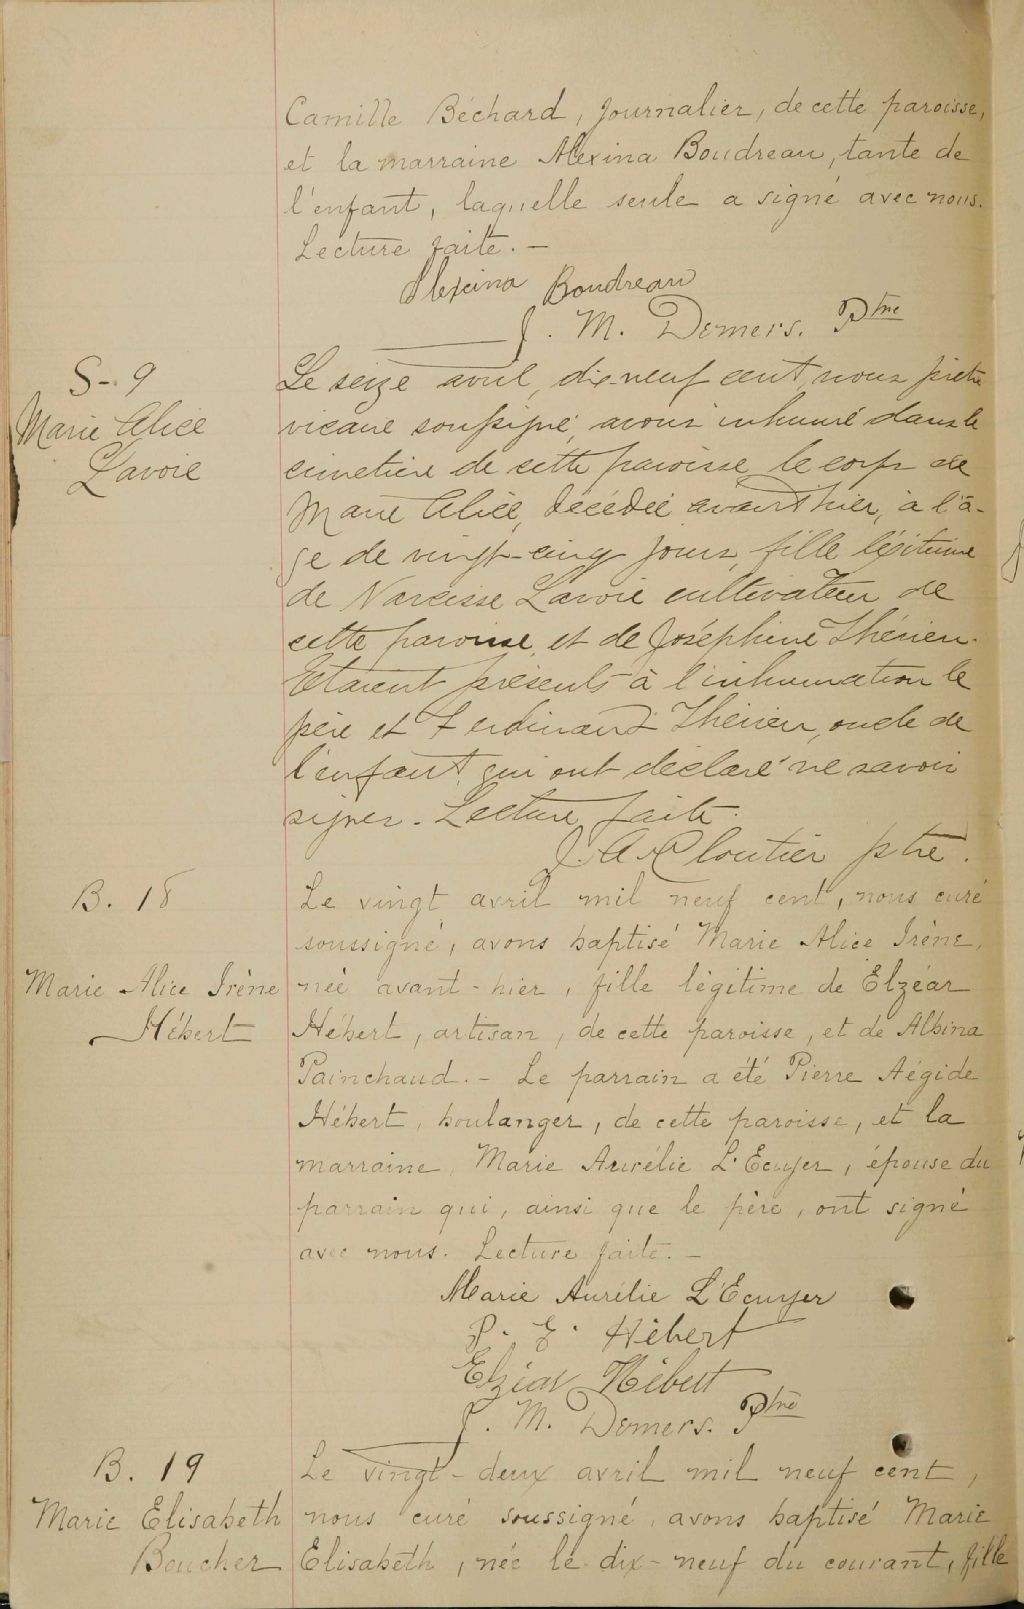 Camille Béchard, journalier, de cette paroisse,
et la marraine Alexina Boudreau, tante de
l'enfant, laquelle seule a signé avec nous.
Lecture faite. —
Alexina Boudreau
J. M. Demers. Ptre
S-9
Marie Alice
Lavoie
Le seize avril, dix-neuf cent, nous prêtre
vicaire soussigné, avons inhumé dans le
cimetière de cette paroisse le corps de
Marie Alice, décédée avant hier, à l'â-
ge de vingt-cinq jours, fille légitime
de Narcisse Lavoie cultivateur de
cette paroisse et de Joséphine Thérien.
Etaient présents à l'inhumation le
père et Ferdinand Thérien, oncle de
l'enfant qui ont déclaré ne savoir
signer. Lecture faite.
J. A. Cloutier ptre.
B. 18
Marie Alice Irène
Hébert
Le vingt avril mil neuf cent, nous curé
soussigné, avons baptisé Marie Alice Irène,
née avant-hier, fille légitime de Elzéar
Hébert, artisan, de cette paroisse, et de Albina
Painchaud. — Le parrain a été Pierre Aégide
Hébert, boulanger, de cette paroisse, et la
marraine, Marie Aurélie L'Ecuyer, épouse du
parrain qui, ainsi que le père, ont signé
avec nous. Lecture faite. —
Marie Aurélie L'Ecuyer
P. E. Hébert
Elzéar Hébert
J. M. Demers. Ptre
B. 19
Marie Elisabeth
Boucher
Le vingt-deux avril mil neuf cent,
nous curé soussigné, avons baptisé Marie
Elisabeth, née le dix-neuf du courant, fille